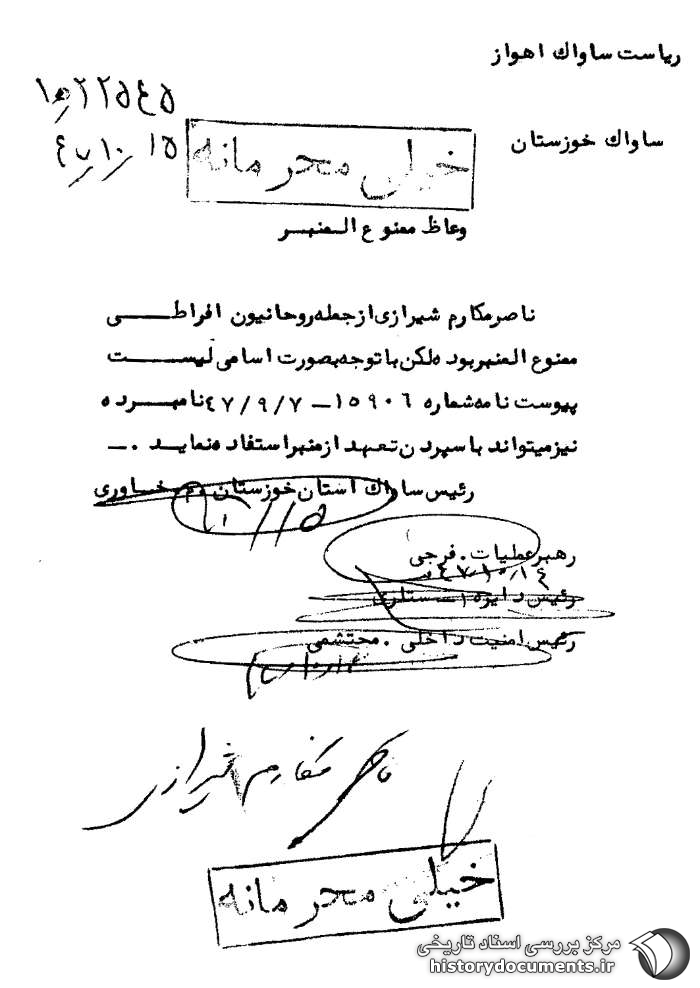 ریاست ساواك اهواز
۱۵٫۲۲۵۴۵
ساواك خوزستان
۱۵ ٫۱۰ ٫۴۷
خیلی محرمانه
وعاظ ممنوع المنبر
ناصر مکارم شیرازی از جمله روحانیون افراطی
ممنوع المنبر بوده لکن با توجه بصورت اسامی لیست
پیوست نامه شماره ۱۵۹۰۶ – ۴۷/۹/۷ نامبرده
نیز میتواند با سپردن تعهد از منبر استفاده نماید . –
رئیس ساواك استان خوزستان . خاوری
رهبر عملیات . فرجی
۴۷٫۱۰٫۱۴
رئیس دایره ۱ –
رئیس امنیت داخلی . محتشمی
ناصر مکارم شیرازی
خیلی محرمانه
مرکز بررسی اسناد تاریخی
historydocuments.ir